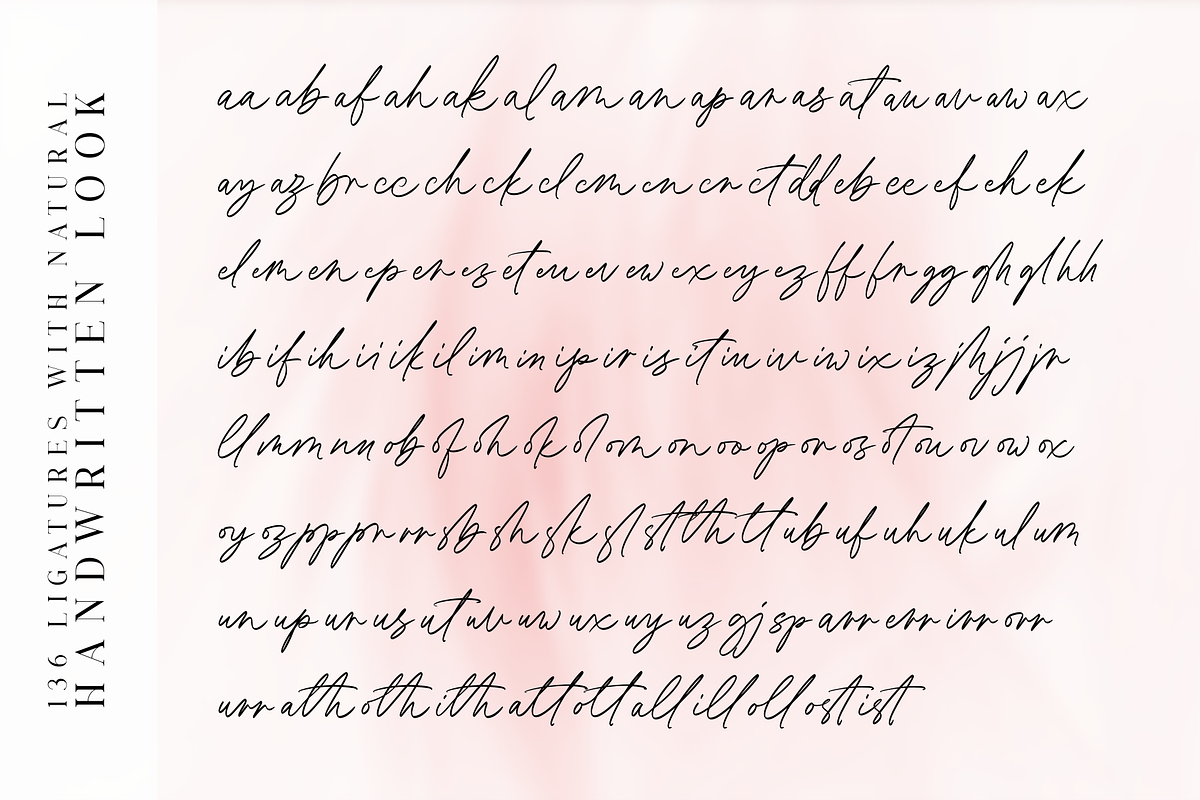 136 LIGATURES WITH NATURAL
HANDWRITTEN LOOK
aa ab af ah ak al am an ap ar as at au av aw ax
ay az br cc ch ck cl cm cn cr ct dd eb ee ef eh ek
el em en ep er es et eu ev ew ex ey ez ff fr gg gh gl hh
ib if ih ii ik il im in ip ir is it iu iv iw ix iz jh jj jr
ll mm nn ob of oh ok ol om on oo op or os ot ou ov ow ox
oy oz pp pr rr sb sh sk sl st th tt ub uf uh uk ul um
un up ur us ut uv uw ux uy uz gj sp arr err irr orr
urr ath oth ith att ott all ill oll ost ist